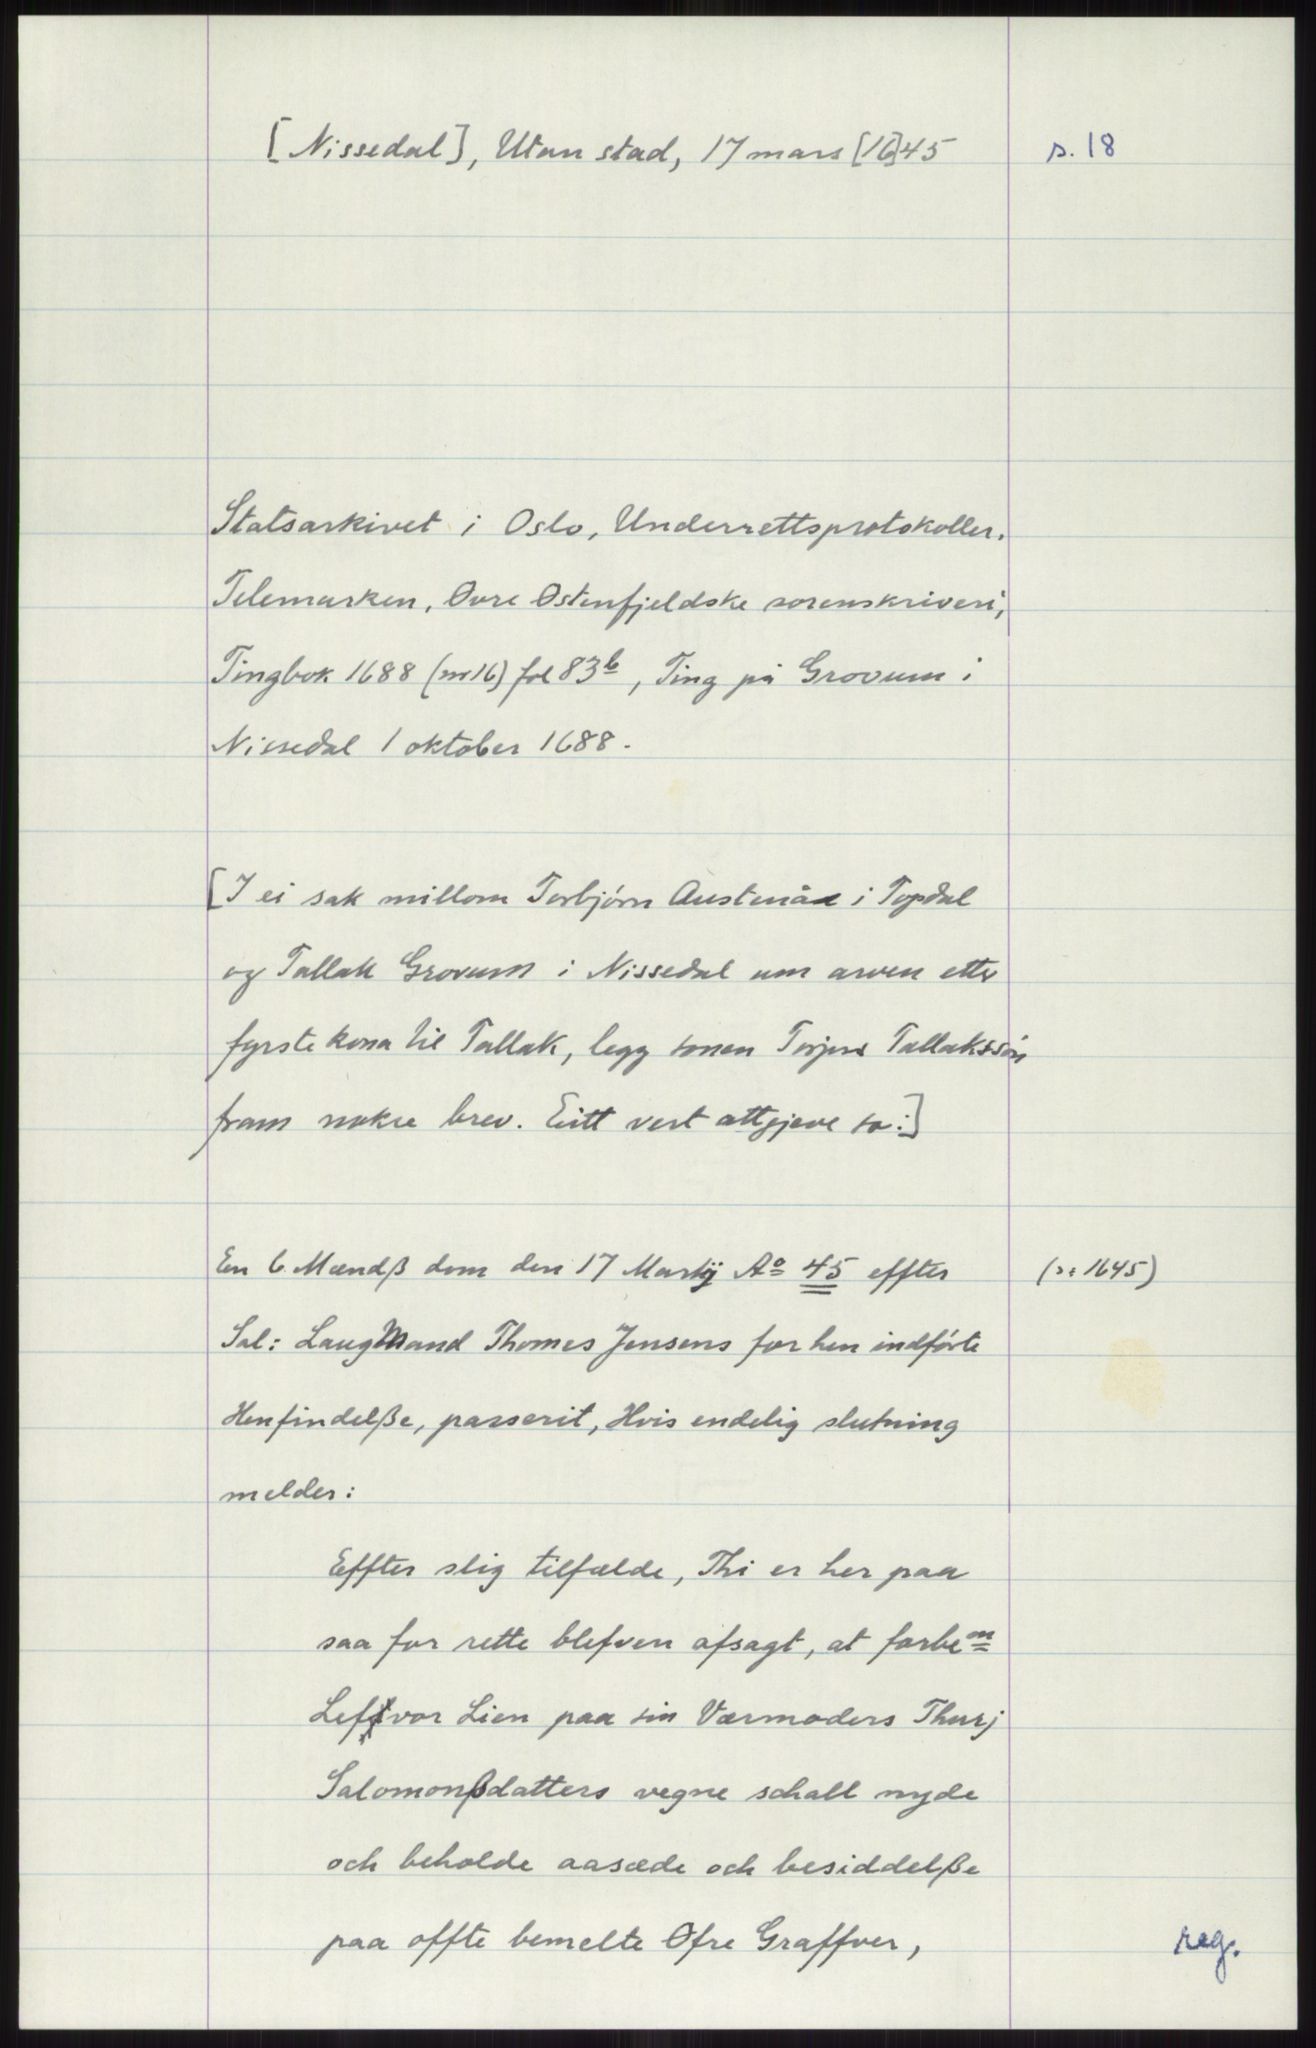 [Nissedal], Utan stad, 17 mars [16]45
s. 18
Statsarkivet i Oslo, Underrettsprotokoller.
Telemarken, Øvre Østenfjeldske sorenskriveri,
Tingbok 1688 (nr 16) fol 83b, Ting på Grovum i
Nissedal 1 oktober 1688.
[I ei sak millom Torbjørn Austenåa i Topdal
og Tallak Grovum i Nissedal um arven etter
fyrste kona til Tallak, legg sonen Torjus Tallaksson
fram nokre brev. Eitt vert attgjeve so:]
En 6 Mændß dom den 17 Martij Ao 45 effter
(ɔ: 1645)
Sal: LaugMand Thomes Jensens for hen indførte
Henfindelße, passerit, Hvis endelig slutning
melder:
Effter slig tilfælde, Thi er her paa
saa for rette blefven afsagt, at forbem
Leffvor Lien paa sin Værmoders Thurj
Salomonßdatters vegne schall nyde
och beholde aasæde och besiddelße
paa offte bemelte Øfre Graffver,
reg.